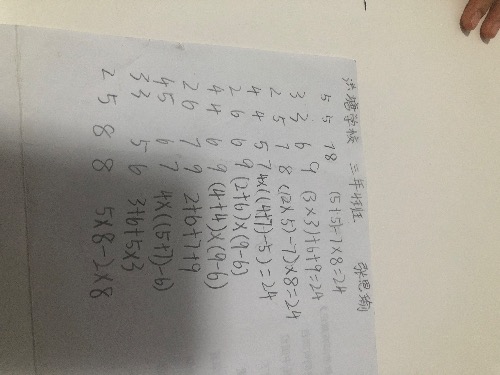 学校 三年4班
5 5 7 8 (5+5-7)×8=24
3 3 6 9 (3×3)+6+9=24
2 5 7 8 ((2×5)-7)×8=24
4 4 5 7 4×((4+7)-5)=24
2 6 6 9 (2+6)×(9-6)
4 4 6 9 (4+4)×(9-6)
2 6 7 9 2+6+7+9
4 5 6 7 4×((5+7)-6)
3 3 5 6 3+6+5×3
2 5 8 8 5×8-2×8